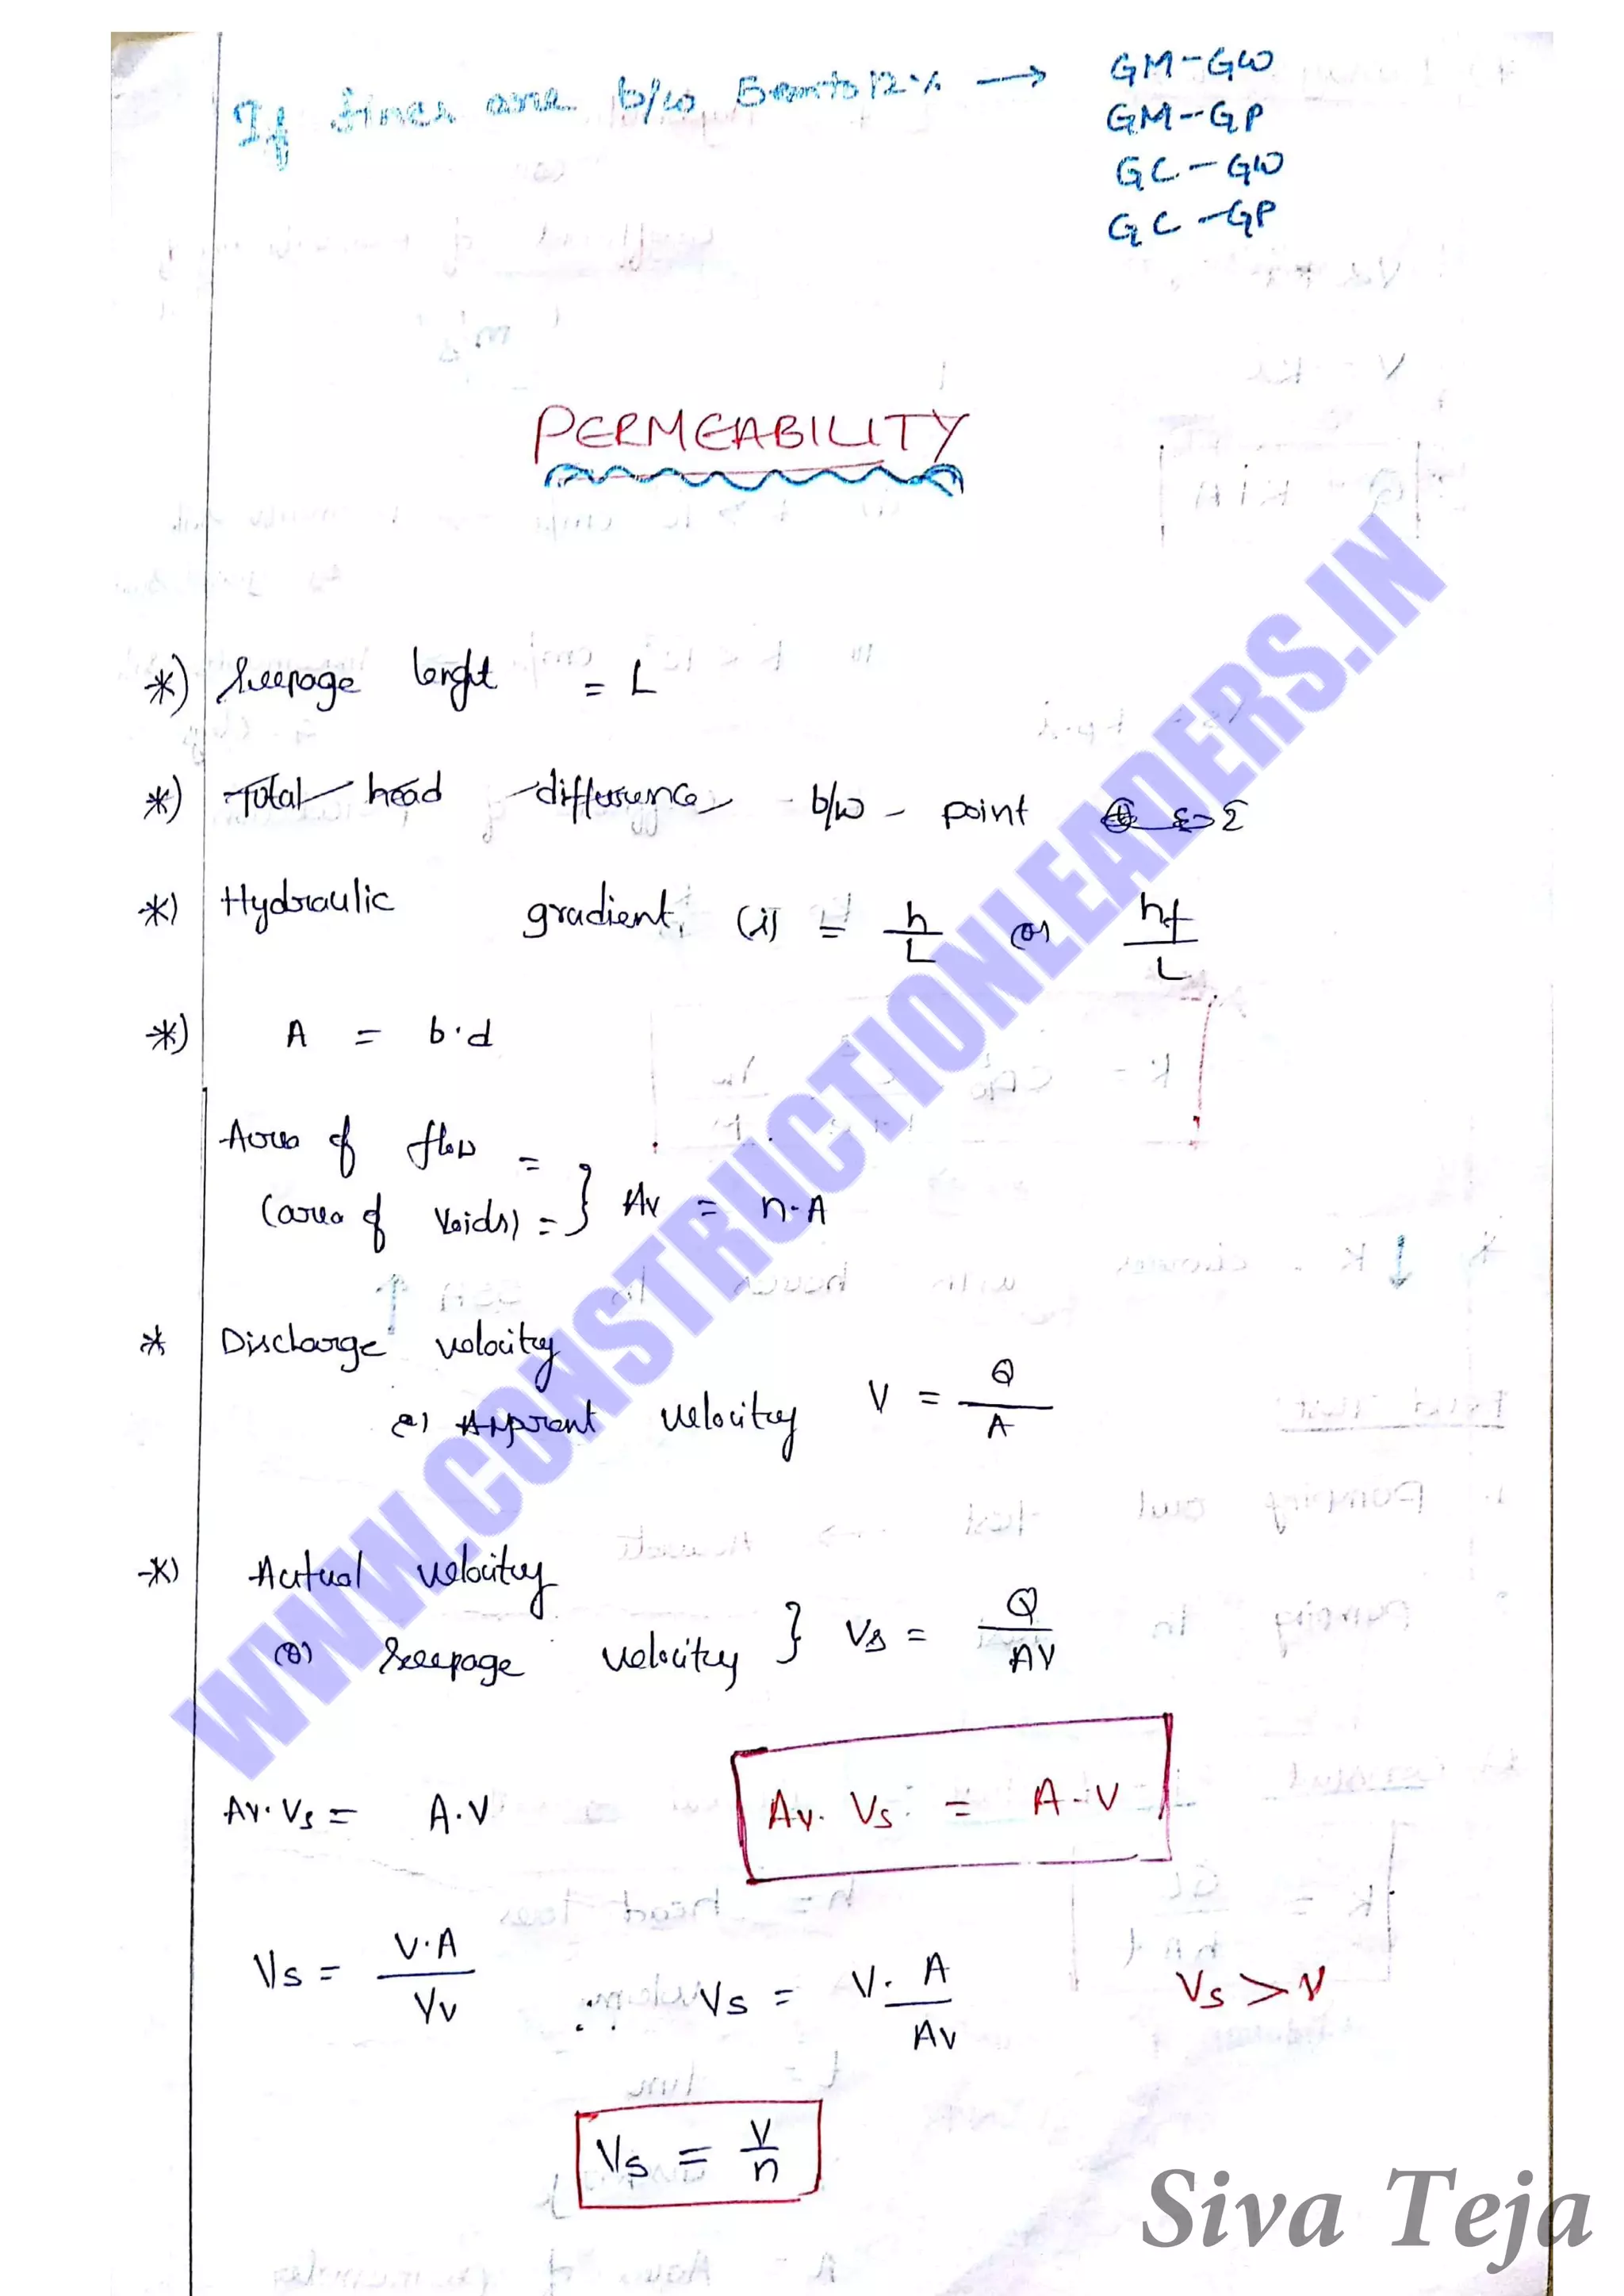 If fines are b/w 5 to 12% → GM-GW
GM-GP
GC-GW
GC-GP
PERMEABILITY
*) Seepage lenght = L
*) Total head difference b/w - point
*) Hydraulic gradient, (i) = h/L (or) hf/L
*) A = b.d
Area of flow =
(area of voids) = } Av = n.A
* Discharge velocity
or) Apprent velocity V = Q/A
*) Actual velocity
(or) Seepage velocity } Vs = Q/AV
Av. Vs = A.V
Av. Vs = A.V
Vs = V.A/Vv ∴ Vs = V. A/AV Vs > V
Vs = V/n
WWW.CONSTRUCTIONLEADERS.IN
Siva Teja